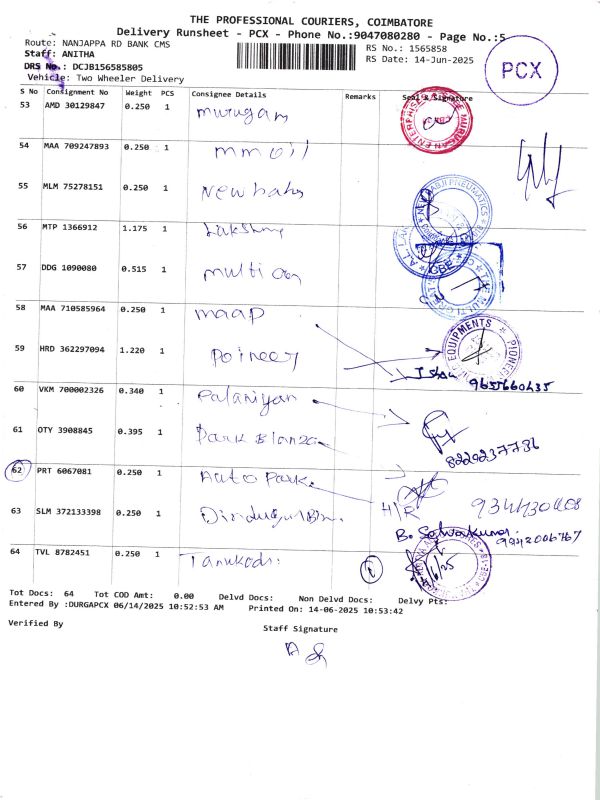 THE PROFESSIONAL COURIERS, COIMBATORE
Delivery Runsheet - PCX - Phone No.:9047080280 - Page No.:5
Route: NANJAPPA RD BANK CMS
RS No.: 1565858
Staff: ANITHA
RS Date: 14-Jun-2025
DRS No.: DCJB156585805
Vehicle: Two Wheeler Delivery
PCX
S No Consignment No Weight PCS Consignee Details Remarks Seal & Signature
53 AMD 30129847 0.250 1 murugan
54 MAA 709247893 0.250 1 mmoil
55 MLM 75278151 0.250 1
56 MTP 1366912 1.175 1 Lakshmy
57 DDG 1090080 0.515 1 multi
58 MAA 710585964 0.250 1 maap
59 HRD 362297094 1.220 1
EQUIPMENTS
9655660435
60 VKM 700002326 0.340 1 Palaniyan
61 OTY 3908845 0.395 1 Park
8220237736
62 PRT 6067081 0.250 1 Auto Park
H/R
63 SLM 372133398 0.250 1
B. Selvakumar
9942006767
64 TVL 8782451 0.250 1
Tot Docs: 64 Tot COD Amt: 0.00 Delvd Docs: Non Delvd Docs: Delvy Pts:
Entered By :DURGAPCX 06/14/2025 10:52:53 AM Printed On: 14-06-2025 10:53:42
Verified By
Staff Signature